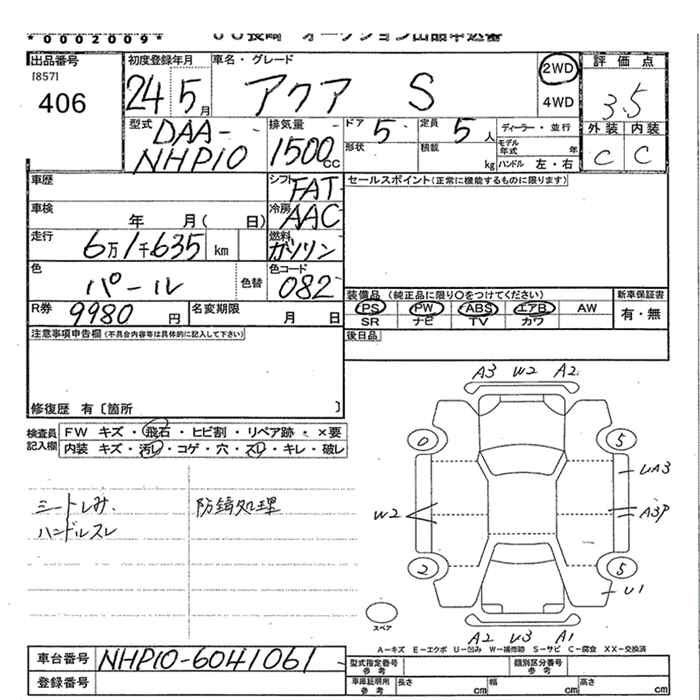 *0002009*
ＵＳ長崎 オークション出品申込書
出品番号
[857]
406
初度登録年月
24 5 月
車名・グレード
アクア S
2WD
4WD
評価点
3.5
外装 内装
C C
型式
DAA-
NHP10
排気量
1500 CC
ドア 5
定員 5 人
ディーラー・並行
形状
積載 kg
モデル年式 年
ハンドル 左・右
車歴
シフト FAT
セールスポイント(正常に機能するものに限ります)
車検 年 月( 日)
冷房 AAC
走行 6万1千635 km
燃料 ガソリン
色 パール
色替
色コード 082
R券 9980 円
名変期限 月 日
装備品 (純正品に限り○をつけてください)
新車保証書
PS PW ABS エアB AW
SR ナビ TV カワ
有・無
注意事項申告欄(不具合内容等は具体的に記入して下さい)
後日品
修復歴 有〔箇所 〕
検査員記入欄
FW キズ・飛石・ヒビ割・リペア跡・×要
内装 キズ・汚れ・コゲ・穴・スレ・キレ・破レ
シートしみ.
ハンドルスレ
防錆処理
A3 W2 A2
0 5
UA3
W2
A3P
2 5
U1
スペア
A2 U3 A1
A-キズ E-エクボ U-凹み W-補修跡 S-サビ C-腐食 XX-交換済
車台番号 NHP10-6041061
登録番号
型式指定番号参考
類別区分番号参考
車庫証明用参考
長さ cm 幅 cm 高さ cm